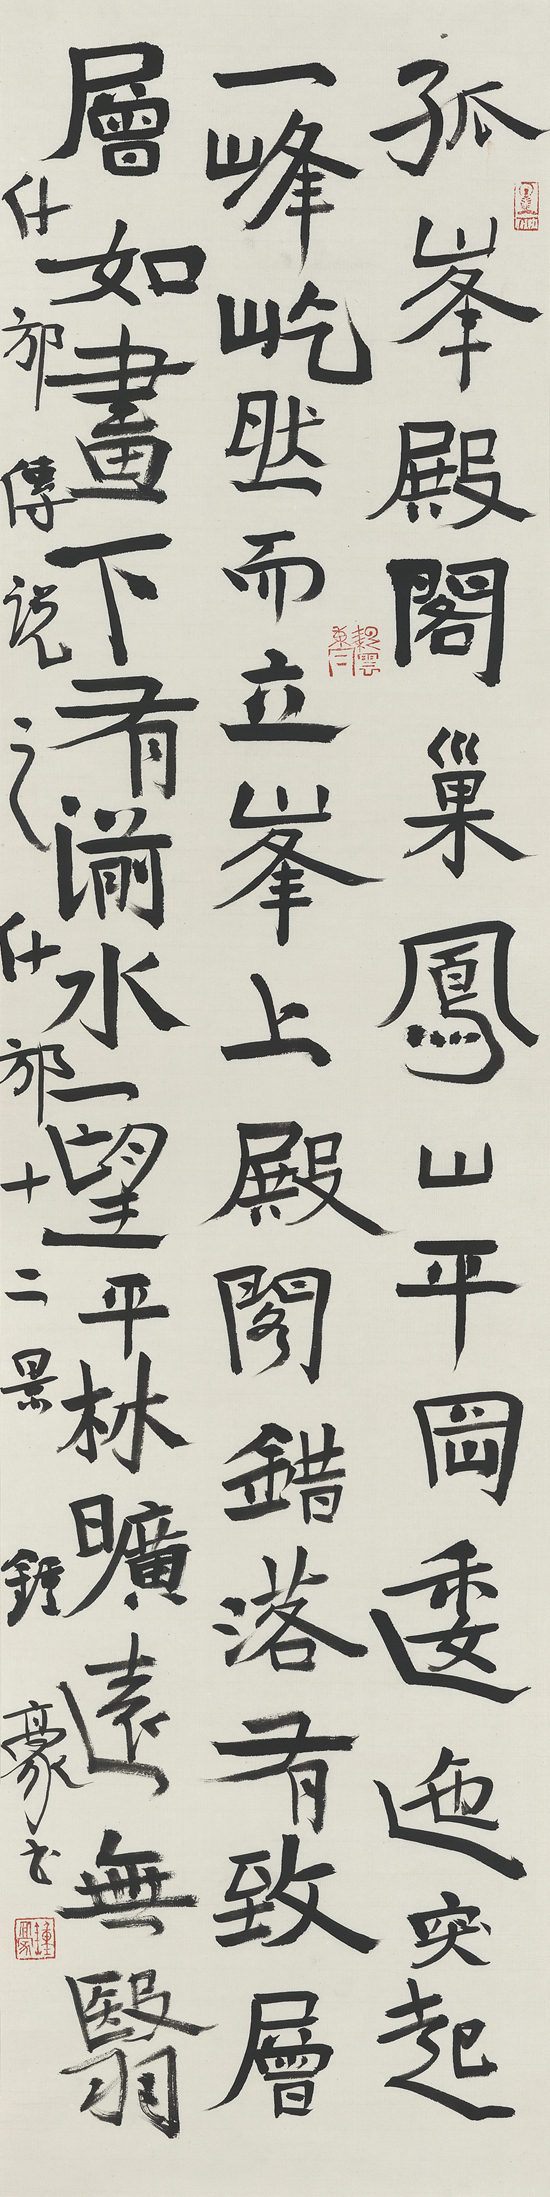 孤峯殿閣巢鳳山平岡逶迤突起
一峰屹然而立峯上殿閣錯落有致層
層如畫下有湔水一望平林曠遠無翳
什邡傳說之什邡十二景 鍾豪书
鍾豪